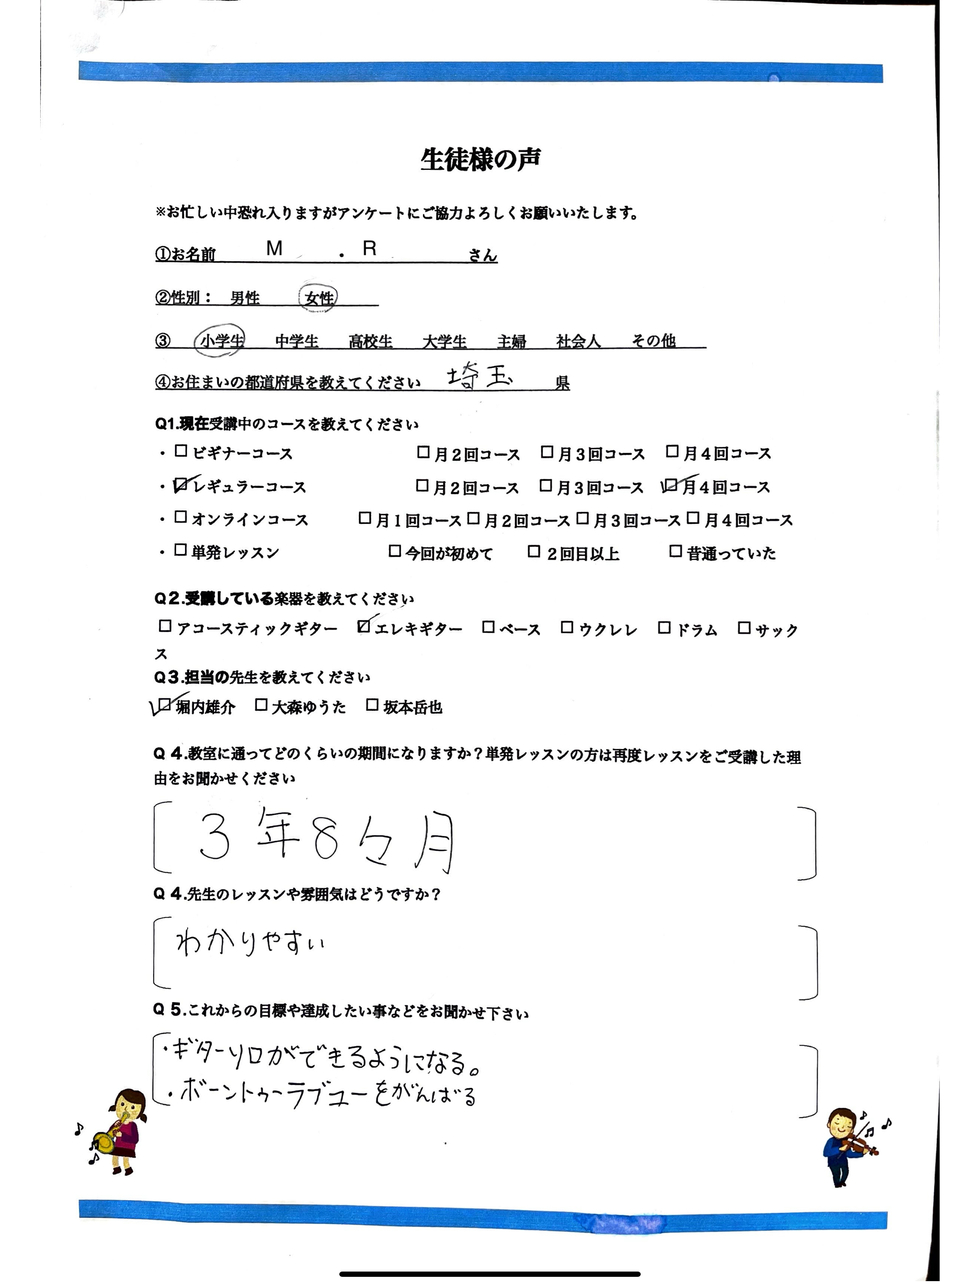 生徒様の声
※お忙しい中恐れ入りますがアンケートにご協力よろしくお願いいたします。
①お名前 M . R さん
②性別： 男性 女性
③ 小学生 中学生 高校生 大学生 主婦 社会人 その他
④お住まいの都道府県を教えてください 埼玉 県
Q1.現在受講中のコースを教えてください
・□ビギナーコース □月２回コース □月３回コース □月４回コース
・☑レギュラーコース □月２回コース □月３回コース ☑月４回コース
・□オンラインコース □月１回コース□月２回コース□月３回コース□月４回コース
・□単発レッスン □今回が初めて □２回目以上 □昔通っていた
Q２.受講している楽器を教えてください
□アコースティックギター ☑エレキギター □ベース □ウクレレ □ドラム □サック
ス
Q３.担当の先生を教えてください
☑堀内雄介 □大森ゆうた □坂本岳也
Q４.教室に通ってどのくらいの期間になりますか？単発レッスンの方は再度レッスンをご受講した理
由をお聞かせください
３年８ヶ月
Q４.先生のレッスンや雰囲気はどうですか？
わかりやすい
Q５.これからの目標や達成したい事などをお聞かせ下さい
・ギターソロができるようになる。
・ボーントゥーラブユーをがんばる